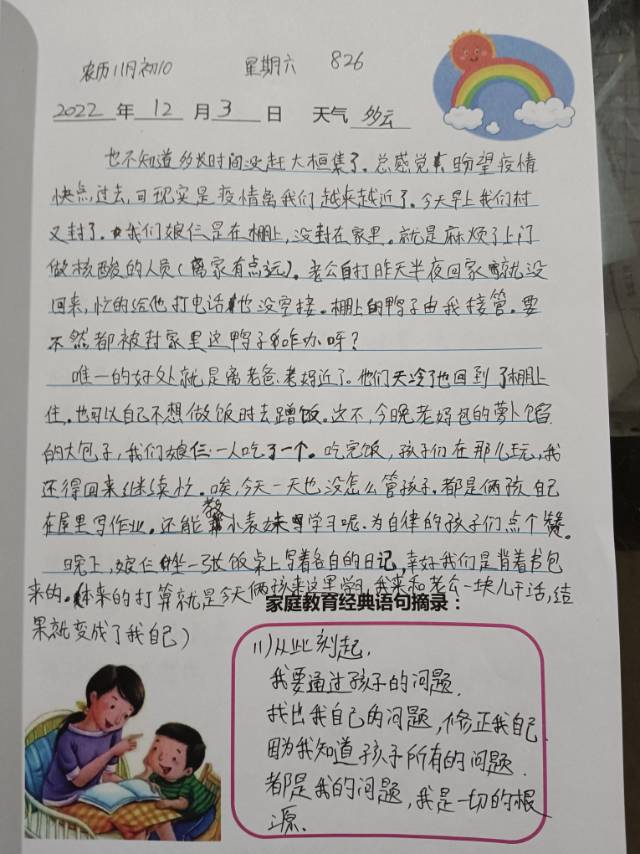 农历11月初10 星期六 826
2022 年 12 月 3 日 天气 多云
也不知道多长时间没赶大桓集了。总感觉盼望疫情
快点过去,可现实是疫情离我们越来越近了。今天早上我们村
又封了。我们娘仨是在棚上,没封在家里。就是麻烦了上门
做核酸的人员(离家有点远)。老公自打昨天半夜回家就没
回来,忙的给他打电话也没空接。棚上的鸭子由我接管。要
不然都被封家里这鸭子咋办呀?
唯一的好处就是离老爸老妈近了。他们天冷了也回到了棚上
住。也可以自己不想做饭时去蹭饭。这不,今晚老妈包的萝卜馅
的大包子,我们娘仨一人吃了一个。吃完饭,孩子们在那儿玩,我
还得回来继续忙。唉,今天一天也没怎么管孩子。都是俩孩自己
在屋里写作业。还能教小表妹学习呢。为自律的孩子们点个赞。
晚上,娘仨坐一张饭桌上写着各自的日记,幸好我们是背着书包
来的。(本来的打算就是今天俩孩来这里学习,我来和老公一块儿干活,结
果就变成了我自己)
家庭教育经典语句摘录:
11)从此刻起,
我要通过孩子的问题,
找出我自己的问题,修正我自己.
因为我知道孩子所有的问题.
都是我的问题,我是一切的根
源.